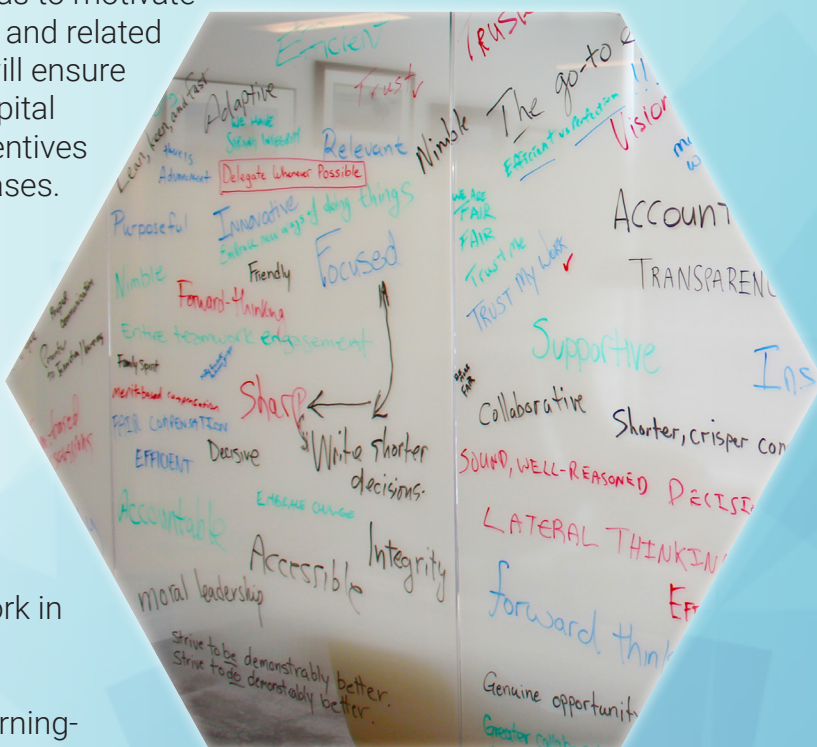 us to motivate
and related
ill ensure
pital
entives
ases.
ork in
rning-
Efficient
Lean, keen, and fast
Adaptive
Trust
WE HAVE
Relevant
Advancement
Delegate Whenever Possible
Purposeful
Innovative
Embrace new ways of doing things
Focused
Friendly
Nimble
Forward-thinking
Entire teamwork engagement
Family Spirit
merit based compensation
Sharp
FAIR COMPENSATION
"Write shorter
decisions.
EFFICIENT
Decisive
Accountable
EMBRACE CHANGE
Accessible
Integrity
moral leadership
Strive to be demonstrably better.
Strive to do demonstrably better.
TRUST
Nimble
The go-to
!!
Efficient vs Perfection
Vision
WE ARE
FAIR
FAIR
Trust me
TRUST MY WORK
ACCOUNT
TRANSPAREN
Supportive
Ins
Collaborative
Shorter, crisper con
SOUND, WELL-REASONED DECISI
LATERAL THINKIN
forward think
Genuine opportunit
Greater collab